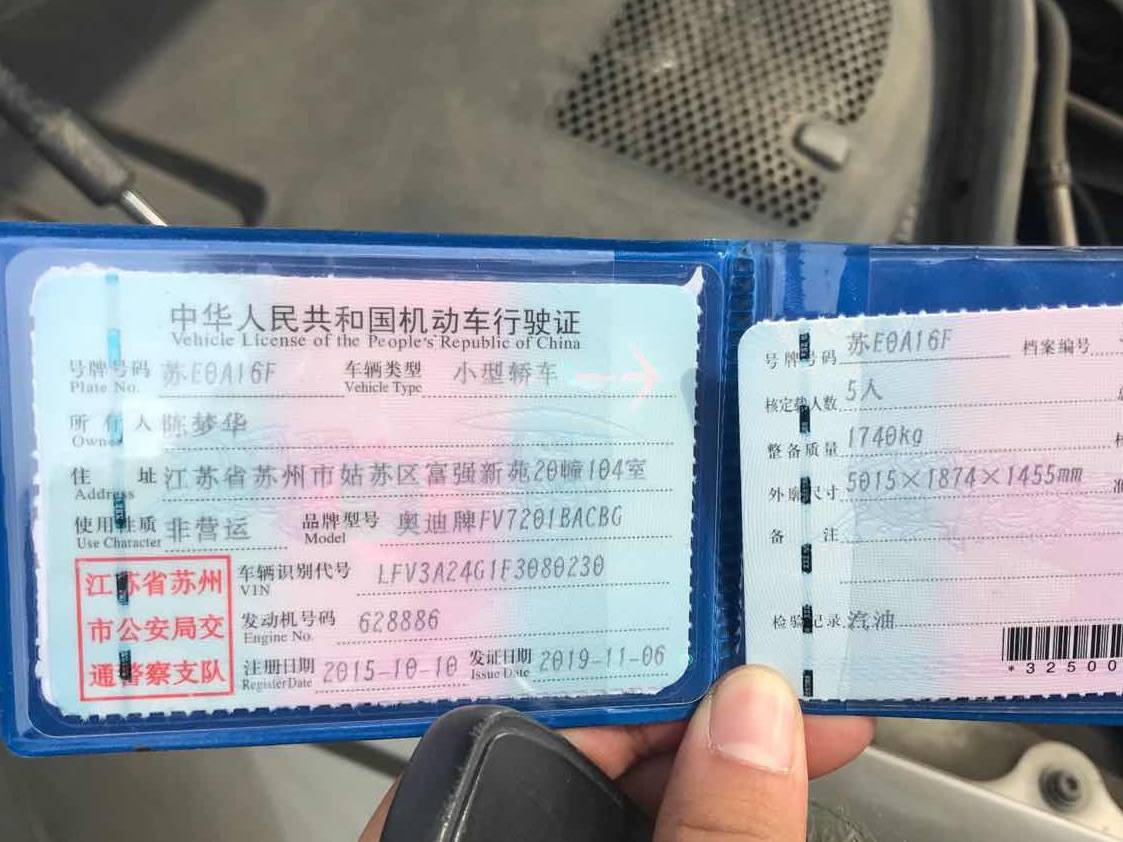 中华人民共和国机动车行驶证
Vehicle License of the People's Republic of China
号牌号码 苏E0A16F 车辆类型 小型轿车
Plate No. Vehicle Type
所有人 陈梦华
Owner
住址 江苏省苏州市姑苏区富强新苑20幢104室
Address
使用性质 非营运 品牌型号 奥迪牌FV7201BACBG
Use Character Model
江苏省苏州
市公安局交
通警察支队
车辆识别代号 LFV3A24G1F3080230
VIN
发动机号码 628886
Engine No.
注册日期 2015-10-10 发证日期 2019-11-06
Register Date Issue Date
号牌号码 苏E0A16F 档案编号
核定载人数 5人
整备质量 1740kg
外廓尺寸 5015×1874×1455mm
备注
检验记录 汽油
*32500